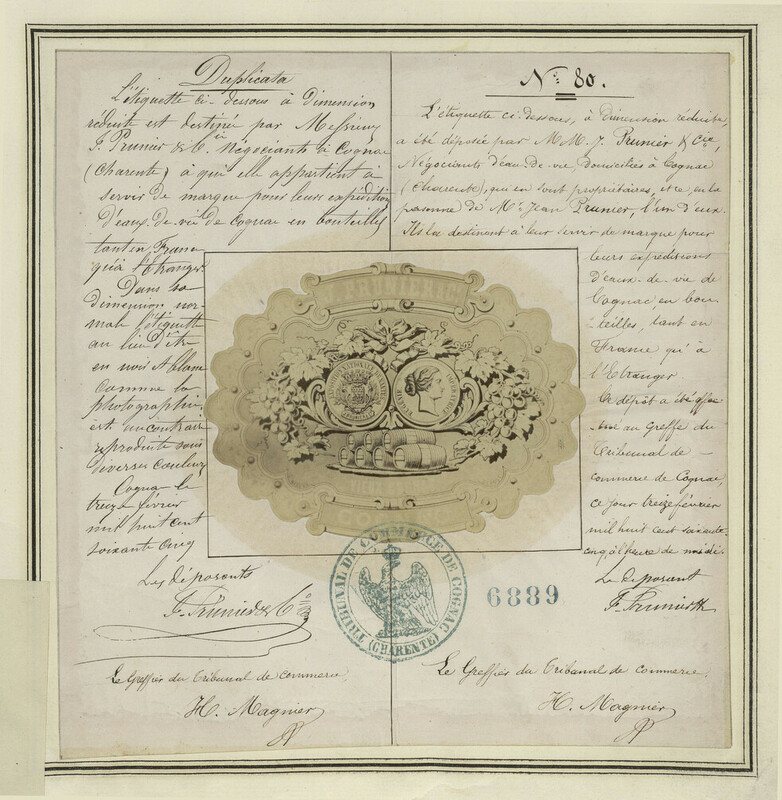 Duplicata
L'étiquette ci-dessous à dimension
réduite est destinée par Messieurs
J. Prunier & Cº Négociants à Cognac
(Charente) à qui elle appartient à
servir de marque pour leurs expéditions
d'eaux-de-vie de Cognac en bouteilles
tant en France
qu'à l'étranger.
Dans sa
dimension nor-
male l'étiquette
au lieu d'être
en noir et blanc
comme la
photographie,
est au contraire
reproduite sous
diverses couleurs
Cognac le
treize février
mil huit cent
soixante cinq
Les déposants
J. Prunier & Cº
Le Greffier du Tribunal de commerce,
H. Magnier
Nº 80.
L'étiquette ci-dessous, à dimension réduite,
a été déposée par M.M. J. Prunier & Cie,
Négociants d'eau-de-vie, domiciliés à Cognac
(Charente), qui en sont propriétaires, et ce en la
personne de Mr. Jean Prunier, l'un d'eux.
Ils la destinent à leur servir de marque pour
leurs expéditions
d'eaux-de-vie de
Cognac, en bou-
teilles, tant en
France qu'à
l'Etranger
Ce dépôt a été effec-
tué au Greffe du
Tribunal de
commerce de Cognac,
ce jour treize février
mil huit cent soixante-
cinq, à l'heure de midi.
Le déposant
J. Prunier
Le Greffier du Tribunal de commerce,
H. Magnier
J. PRUNIER & Cº
TRIBUNAL DE COMMERCE DE COGNAC
(CHARENTE)
6889